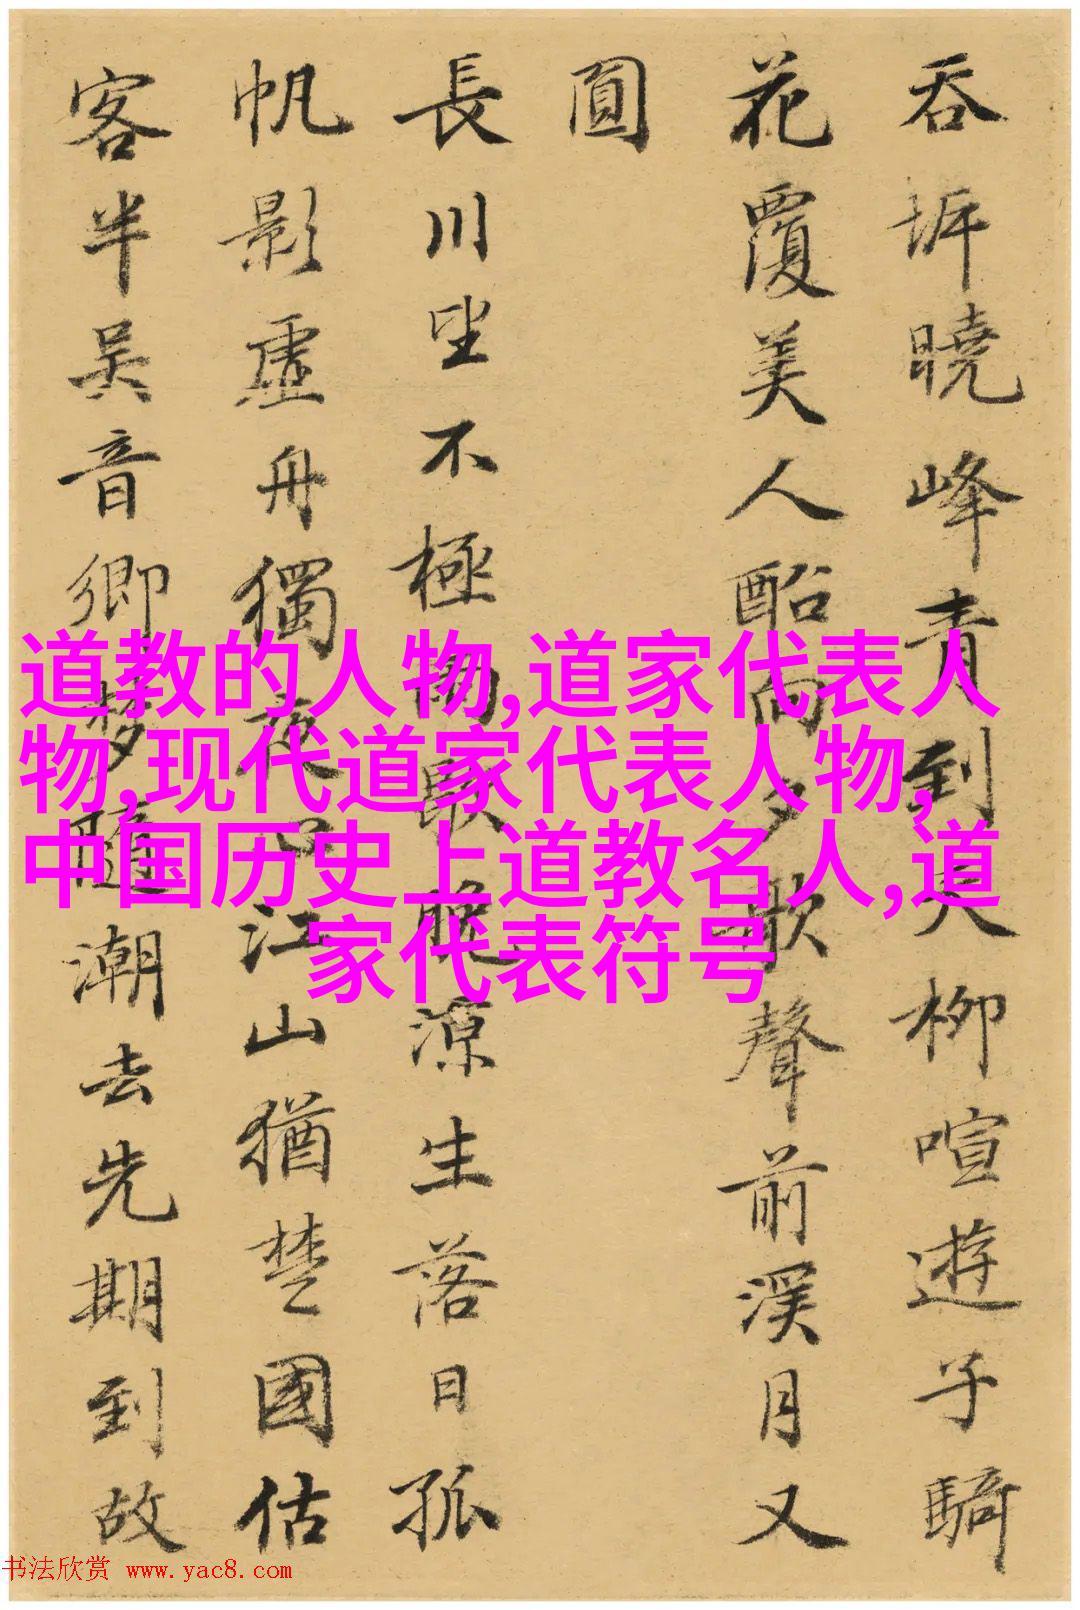 吞坼曉峰青到天柳喧遊子騎
花覆美人酩向夕歌聲前溪月又
圓
長川坐不極向晚源生落日孤
帆影虛舟獨夜心江山猶楚國估
客半吴音鄉夢隨潮去先期到故
道教的人物,道家代表人
物,现代道家代表人物,
中国历史上道教名人,道
家代表符号
书法欣赏 www.yac8.com